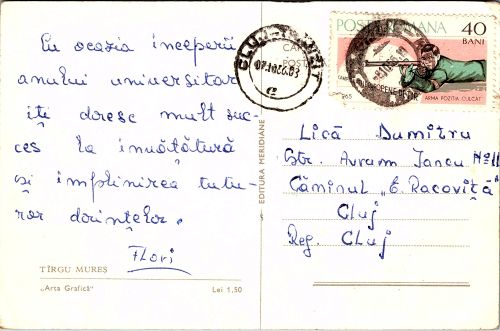 Cu ocazia începerii
anului universitar
îţi doresc mult suc-
ces la învăţătură
şi împlinirea tutu-
ror dorinţelor.
Flori
TÎRGU MUREŞ
„Arta Grafică”
Lei 1,50
EDITURA MERIDIANE
POSTA ROMANA
40
BANI
ARMA POZIŢIA CULCAT
Lică Dumitru
Str. Avram Iancu No 11
Căminul „E. Racoviţă"
Cluj
Reg. Cluj